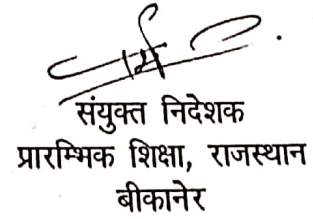 संयुक्त निदेशक
प्रारम्भिक शिक्षा, राजस्थान
बीकानेर